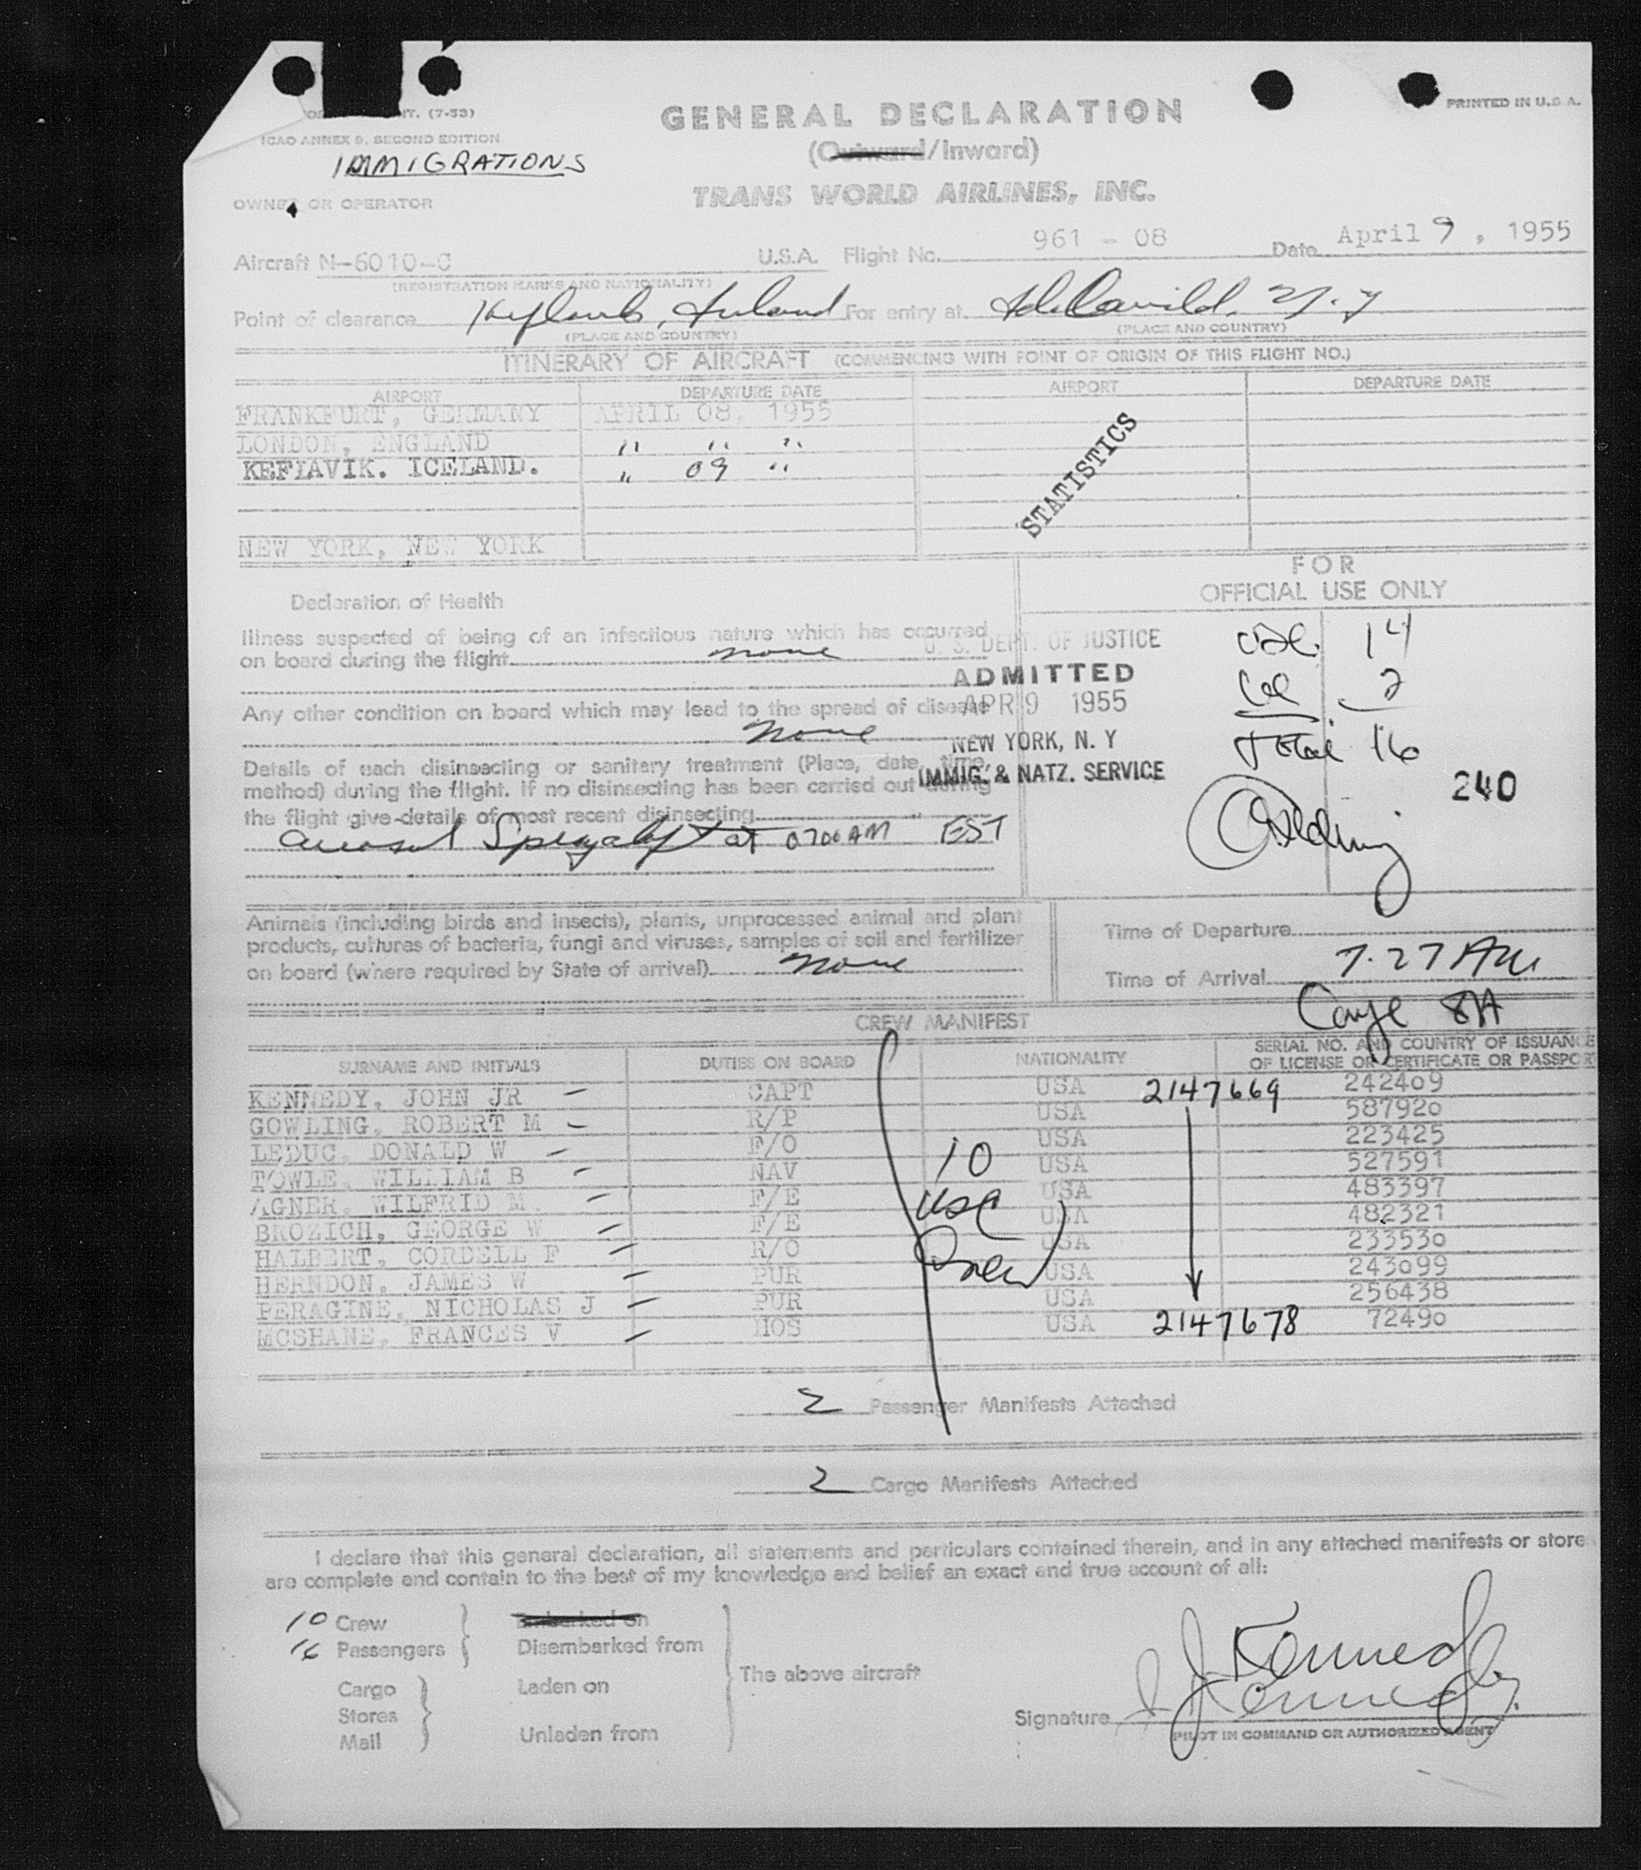 NT. (7-53)
PRINTED IN U.S.A.
ICAO ANNEX 9, SECOND EDITION
IMMIGRATIONS
GENERAL DECLARATION
(Outward/Inward)
TRANS WORLD AIRLINES, INC.
OWNER OR OPERATOR
Aircraft N-6010-C U.S.A. Flight No. 961 - 08 Date April 9, 1955
(REGISTRATION MARKS AND NATIONALITY)
Point of clearance For entry at Idlewild, N.Y
(PLACE AND COUNTRY) (PLACE AND COUNTRY)
ITINERARY OF AIRCRAFT (COMMENCING WITH POINT OF ORIGIN OF THIS FLIGHT NO.)
AIRPORT DEPARTURE DATE AIRPORT DEPARTURE DATE
FRANKFURT, GERMANY APRIL 08, 1955
LONDON, ENGLAND " " "
KEFLAVIK. ICELAND. " 09 "
NEW YORK, NEW YORK
STATISTICS
FOR
OFFICIAL USE ONLY
Declaration of Health
Illness suspected of being of an infectious nature which has occurred
on board during the flight none
Any other condition on board which may lead to the spread of disease
none
Details of each disinsecting or sanitary treatment (Place, date, time,
method) during the flight. If no disinsecting has been carried out during
the flight give details of most recent disinsecting
aerosol at 0700 AM EST
U. S. DEPT. OF JUSTICE
ADMITTED
APR 9 1955
NEW YORK, N. Y
IMMIG. & NATZ. SERVICE
USC 14
2
Total 16
240
Animals (including birds and insects), plants, unprocessed animal and plant
products, cultures of bacteria, fungi and viruses, samples of soil and fertilizer
on board (where required by State of arrival) none
Time of Departure
Time of Arrival 7.27 AM
CREW MANIFEST
SURNAME AND INITIALS DUTIES ON BOARD NATIONALITY SERIAL NO. AND COUNTRY OF ISSUANCE
OF LICENSE OR CERTIFICATE OR PASSPOR
KENNEDY, JOHN JR CAPT USA 2147669 242409
GOWLING, ROBERT M R/P USA 587920
LEDUC, DONALD W F/O USA 223425
TOWLE, WILLIAM B NAV USA 527591
AGNER, WILFRID M. F/E USA 483397
BROZICH, GEORGE W F/E USA 482321
HALBERT, CORDELL F R/O USA 233530
HERNDON, JAMES W PUR USA 243099
PERAGINE, NICHOLAS J PUR USA 256438
MCSHANE, FRANCES V HOS USA 2147678 72490
10
USC
Crew
2 Passenger Manifests Attached
2 Cargo Manifests Attached
I declare that this general declaration, all statements and particulars contained therein, and in any attached manifests or store
are complete and contain to the best of my knowledge and belief an exact and true account of all:
10 Crew Embarked on
16 Passengers Disembarked from
The above aircraft
Cargo Laden on
Stores
Mail Unladen from
J Kennedy
J Kennedy
Signature
PILOT IN COMMAND OR AUTHORIZED AGENT